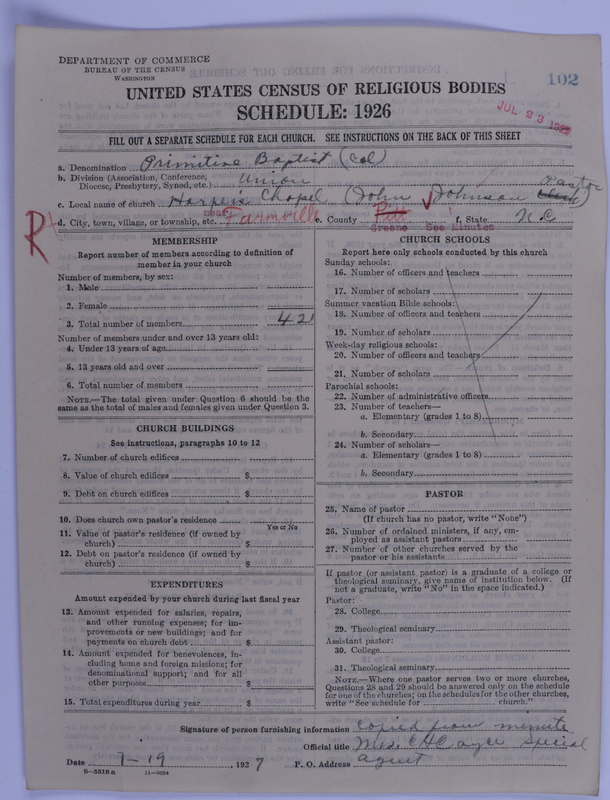 DEPARTMENT OF COMMERCE
BUREAU OF THE CENSUS
WASHINGTON
102
UNITED STATES CENSUS OF RELIGIOUS BODIES
SCHEDULE: 1926
JUL 23 192
FILL OUT A SEPARATE SCHEDULE FOR EACH CHURCH. SEE INSTRUCTIONS ON THE BACK OF THIS SHEET
a. Denomination Primitive Baptist (Col)
b. Division (Association, Conference, Diocese, Presbytery, Synod, etc.) Union
c. Local name of church Harper's Chapel (John Johnson Pastor
d. City, town, village, or township, etc. near Farmville e. County Pitt f. State N C
Greene See Minutes
R
MEMBERSHIP
Report number of members according to definition of
member in your church
Number of members, by sex:
1. Male
2. Female
3. Total number of members 42
Number of members under and over 13 years old:
4. Under 13 years of age
5. 13 years old and over
6. Total number of members
NOTE.—The total given under Question 6 should be the
same as the total of males and females given under Question 3.
CHURCH BUILDINGS
See instructions, paragraphs 10 to 12
7. Number of church edifices
8. Value of church edifices $
9. Debt on church edifices $
10. Does church own pastor's residence
Yes or No
11. Value of pastor's residence (if owned by
church) $
12. Debt on pastor's residence (if owned by
church) $
EXPENDITURES
Amount expended by your church during last fiscal year
13. Amount expended for salaries, repairs,
and other running expenses; for im-
provements or new buildings; and for
payments on church debt $
14. Amount expended for benevolences, in-
cluding home and foreign missions; for
denominational support; and for all
other purposes $
15. Total expenditures during year $
CHURCH SCHOOLS
Report here only schools conducted by this church
Sunday schools:
16. Number of officers and teachers
17. Number of scholars
Summer vacation Bible schools:
18. Number of officers and teachers
19. Number of scholars
Week-day religious schools:
20. Number of officers and teachers
21. Number of scholars
Parochial schools:
22. Number of administrative officers
23. Number of teachers—
a. Elementary (grades 1 to 8)
b. Secondary
24. Number of scholars—
a. Elementary (grades 1 to 8)
b. Secondary
PASTOR
25. Name of pastor
(If church has no pastor, write "None")
26. Number of ordained ministers, if any, em-
ployed as assistant pastors
27. Number of other churches served by the
pastor or his assistants
If pastor (or assistant pastor) is a graduate of a college or
theological seminary, give name of institution below. (If
not a graduate, write "No" in the space indicated.)
Pastor:
28. College
29. Theological seminary
Assistant pastor:
30. College
31. Theological seminary
NOTE.—Where one pastor serves two or more churches,
Questions 28 and 29 should be answered only on the schedule
for one of the churches; on the schedules for the other churches,
write "See schedule for church."
Signature of person furnishing information Copied from minute
Official title Special
Date 7-19, 1927 P. O. Address agent
8—5518 a 11—9264